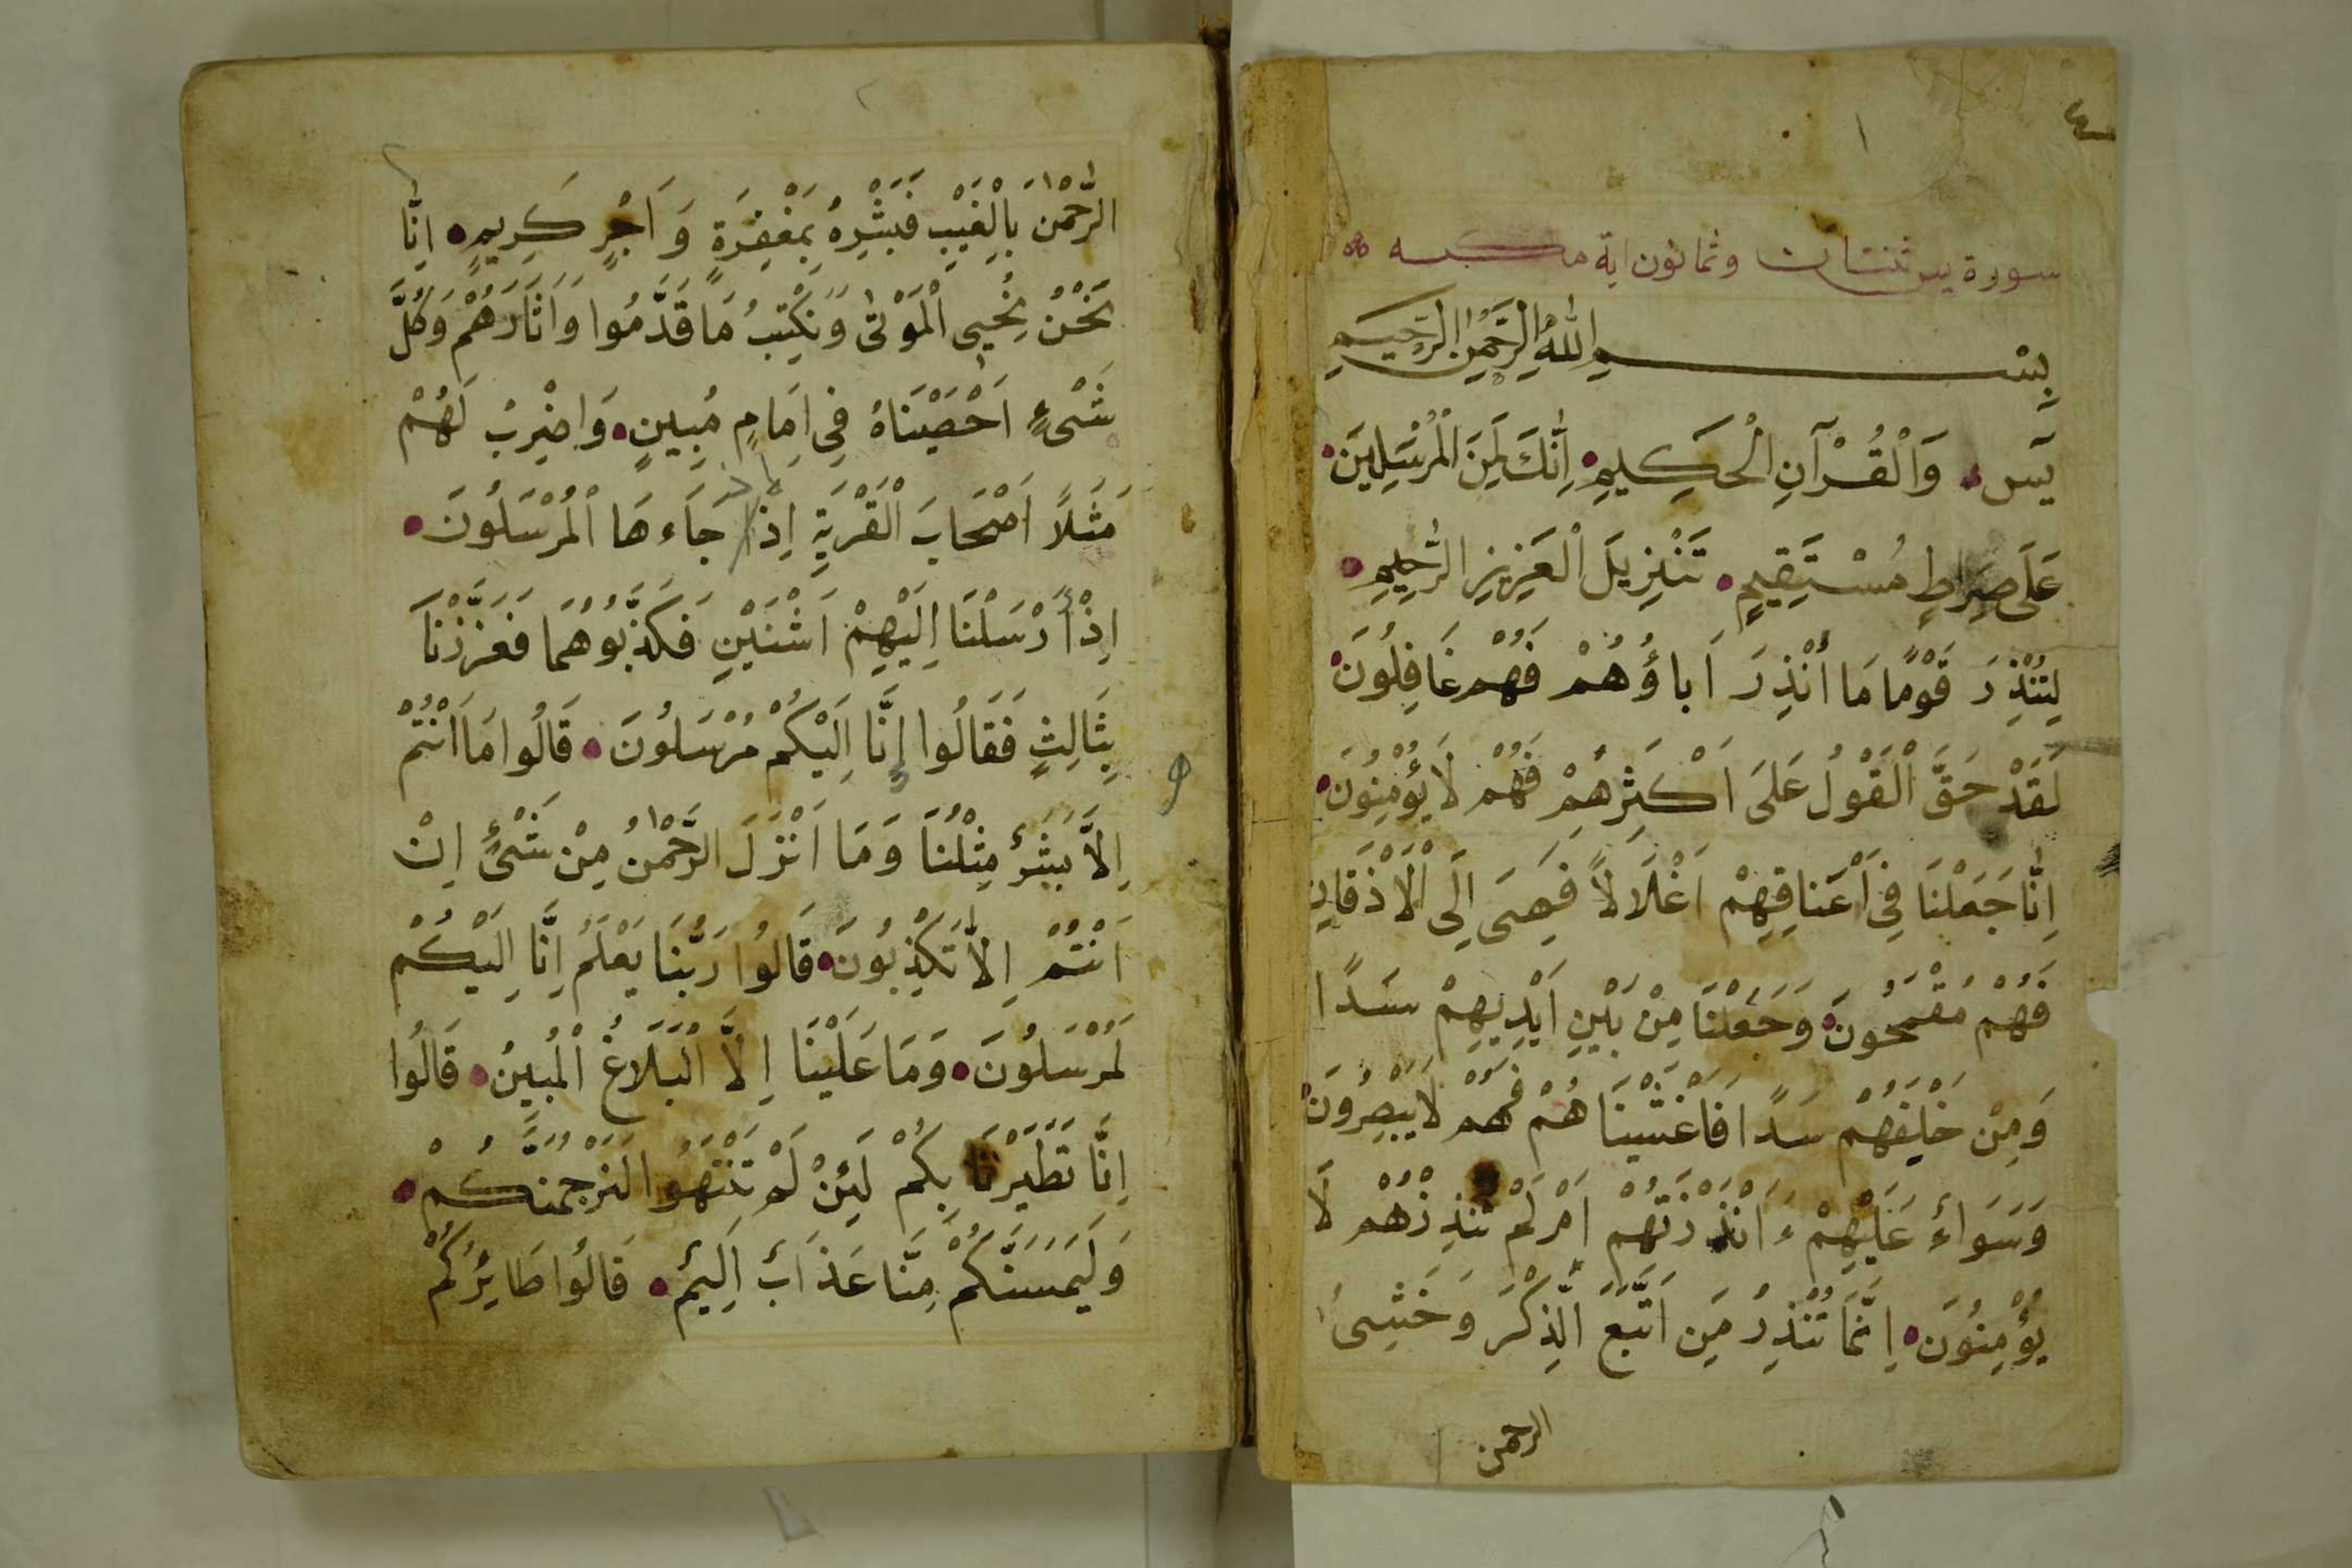 ١
سورة يس ثنتان وثمانون اية مكية
بِسْمِ اللّٰهِ الرَّحْمٰنِ الرَّحِيمِ
يٓس وَالْقُرْآنِ الْحَكِيمِ اِنَّكَ لَمِنَ الْمُرْسَلِينَ
عَلَى صِرَاطٍ مُسْتَقِيمٍ تَنْزِيلَ الْعَزِيزِ الرَّحِيمِ
لِتُنْذِرَ قَوْمًا مَا أُنْذِرَ اَباؤُهُمْ فَهُمْ غَافِلُونَ
لَقَدْ حَقَّ الْقَوْلُ عَلَى اَكْثَرِهِمْ فَهُمْ لَا يُؤْمِنُونَ
اِنَّا جَعَلْنَا فِي اَعْنَاقِهِمْ اَغْلَالاً فَهِىَ اِلَى الْاَذْقَانِ
فَهُمْ مُقْمَحُونَ وَجَعَلْنَا مِنْ بَيْنِ اَيْدِيهِمْ سَدًا
وَمِنْ خَلْفِهُمْ سَدًا فَاَغْشَيْنَا هُمْ فَهُمْ لَا يُبْصِرُونَ
وَسَوَاءٌ عَلَيْهِمْ ءَاَنْذَرْتَهُمْ اَمْ لَمْ تُنْذِرْهُمْ لَا
يُؤْمِنُونَ اِنَّمَا تُنْذِرُ مَنِ اتَّبَعَ الذِّكْرَ وَخَشِىَ
الرحمن
٢
الرَّحْمٰنَ بِالْغَيْبِ فَبَشِّرْهُ بِمَغْفِرَةٍ وَ اَجْرٍ كَرِيمٍ اِنَّا
نَحْنُ نُحْيِي الْمَوْتٰى وَنَكْتُبُ مَا قَدَّمُوا وَاَثَارَهُمْ وَكُلَّ
شَىْءٍ اَحْصَيْنَاهُ فِي اِمَامٍ مُبِينٍ وَاضْرِبْ لَهُمْ
مَثَلاً اَصْحَابَ الْقَرْيَةِ اِذْ جَاءَهَا الْمُرْسَلُونَ
اِذْ أَرْسَلْنَا اِلَيْهِمْ اثْنَيْنِ فَكَذَّبُوهُمَا فَعَزَّزْنَا
بِثَالِثٍ فَقَالُوا اِنَّا اِلَيْكُمْ مُرْسَلُونَ قَالُوا مَا اَنْتُمْ
اِلَّا بَشَرٌ مِثْلُنَا وَمَا اَنْزَلَ الرَّحْمٰنُ مِنْ شَىْءٍ اِنْ
اَنْتُمْ اِلَّا تَكْذِبُونَ قَالُوا رَبُّنَا يَعْلَمُ اِنَّا اِلَيْكُمْ
لَمُرْسَلُونَ وَمَا عَلَيْنَا اِلَّا الْبَلَاغُ الْمُبِينُ قَالُوا
اِنَّا تَطَيَّرْنَا بِكُمْ لَئِنْ لَمْ تَنْتَهُوا لَنَرْجُمَنَّكُمْ
وَلَيَمَسَّنَّكُمْ مِنَّا عَذَابٌ اَلِيمٌ قَالُوا طَايِرُكُمْ